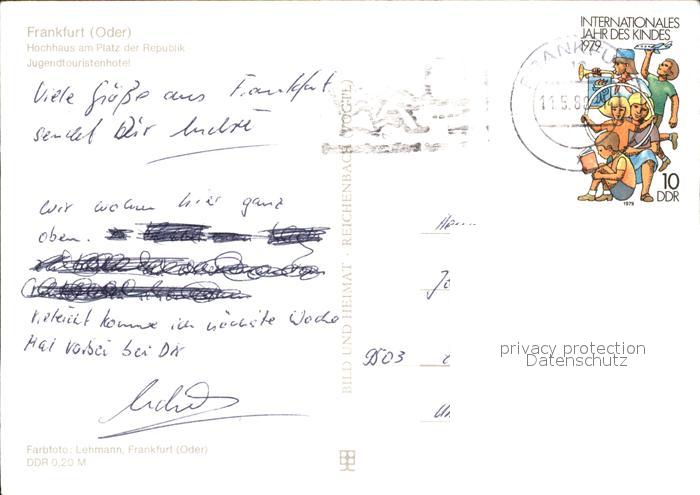 Frankfurt (Oder)
Hochhaus am Platz der Republik
Jugendtouristenhotel
Viele Grüße aus Frankfurt
sendet Dir
Wir wohnen hier ganz
oben.
Vieleicht komme ich nächste Woche
Mal vorbei bei Dir
Farbfoto: Lehmann, Frankfurt (Oder)
DDR 0,20 M
BILD UND HEIMAT · REICHENBACH (VOGTL)
INTERNATIONALES
JAHR DES KINDES
1979
10
DDR
1979
FRANKFU
11.5.80
DDR
privacy protection
Datenschutz